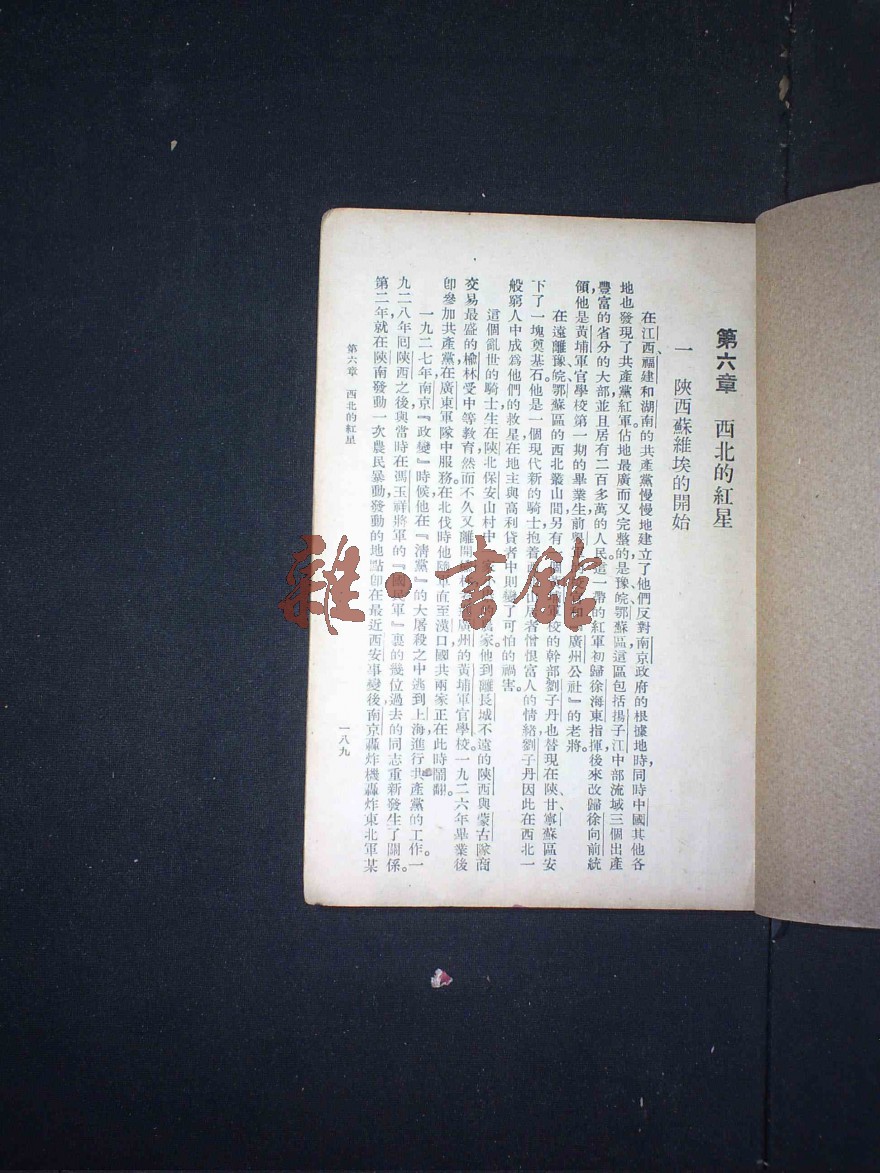 第六章　西北的紅星
一　陝西蘇維埃的開始
在江西、福建和湖南的共產黨慢慢地建立了他們反對南京政府的根據地時，同時中國其他各
地也發現了共產黨紅軍。佔地最廣而又完整的是豫皖鄂蘇區。這區包括揚子江中部流域三個出產
豐富的省分的大部，並且居有二百多萬的人民。這一帶的紅軍初歸徐海東指揮，後來改歸徐向前統
領，他是黃埔軍官學校第一期的畢業生，前 廣州公社』的老將。
在遠離豫、皖、鄂蘇區的西北叢山間，另有 軍校的幹部劉子丹也替現在陝、甘、寧蘇區安
下了一塊奠基石。他是一個現代新的騎士，抱着 居者憎恨富人的情緒。劉子丹因此在西北一
般窮人中成爲他們的救星，在地主與高利貸者中則變了可怕的禍害。
這個亂世的騎士生在陝北保安山村中 家。他到離長城不遠的陝西與蒙古隊商
交易最盛的榆林受中等教育，然而不久又離開 廣州的黃埔軍官學校。一九二六年畢業後
卽參加共產黨，在廣東軍隊中服務。在北伐時他隨軍直至漢口，國共兩家正在此時鬧翻。
一九二七年南京『政變』時候，他在『淸黨』的大屠殺之中逃到上海，進行共產黨的工作。一
九二八年囘陝西之後，與當時在馮玉祥將軍的『國民軍』裏的幾位過去的同志重新發生了關係。
第二年就在陝南發動一次農民暴動，發動的地點卽在最近西安事變後，南京轟炸機轟炸東北軍某
第六章　西北的紅星
一八九
雜·書館